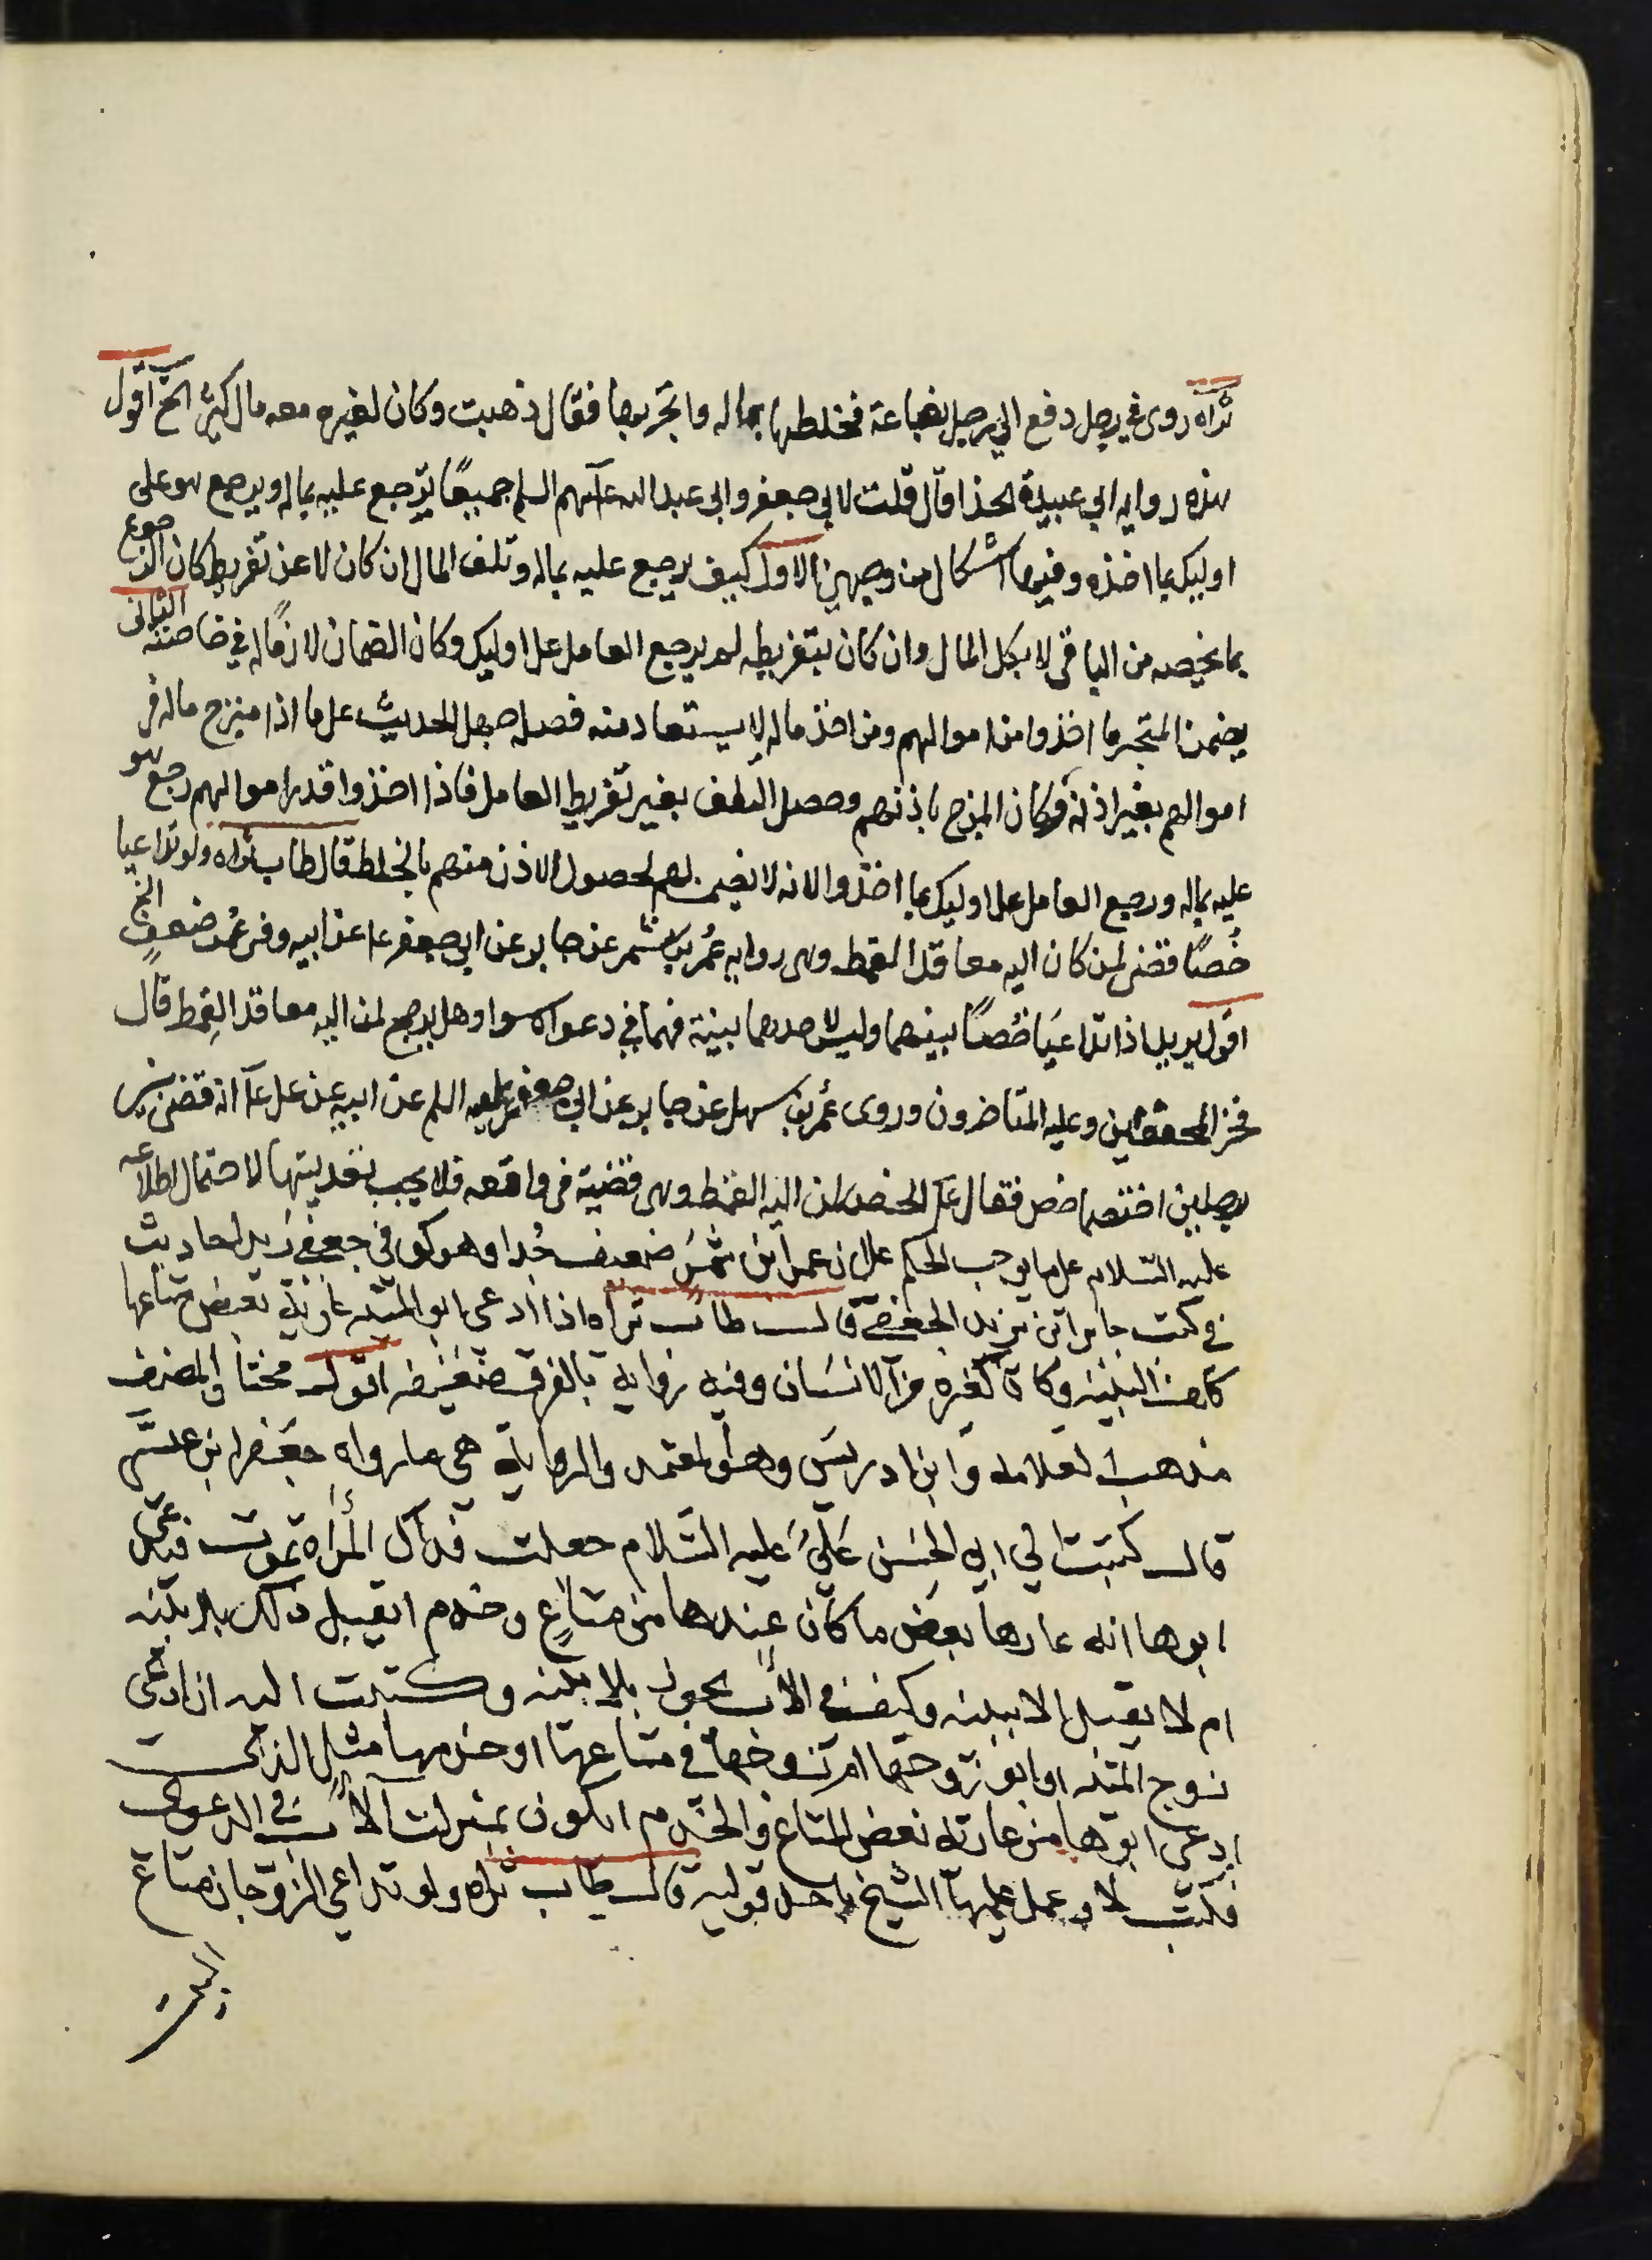 ثراه روى في رجل دفع الي رجل بضاعة فخلطها بماله واتجر بها فقال ذهبت وكان لغيره معه مال كثير الخ اقول
هذه روايه ابي عبيدة الحذا قال قلت لابي جعفر وابي عبدالله عليهم السلم جميعًا يرجع عليه بماله ويرجع هو على
اوليك بما اخذه وفيها اشكال من وجهين الاول كيف يرجع عليه بماله وتلف المال ان كان لا عن تفريط كان الرجوع
بما يخصه من الباقى لا بكل المال وان كان بتفريطه لم يرجع العامل على اوليك وكان الضمان لازمًا له في خاصته الثانى
يضمن المتجر ما اخذوا من اموالهم ومن اخذ ماله لا يستعاد منه فصل حمل الحديث على ما اذا امتزج ماله فى
اموالهم بغير اذنه وكان المزج باذنهم وحصل التلف بغير تفريط العامل فاذا اخذوا قدر اموالهم رجع هو
عليه بماله ورجع العامل على اوليك بما اخذوا لانه لا يضمن لهم لحصول الاذن منهم بالخلط قال طاب ثراه ولو تداعيا
خُصًا قضى لمن كان اليه معاقد القمط وهى روايه عُمر بن شمر عن جابر عن ابي جعفر ع عن ابيه وفى عُمر ضعف الخ
اقول يريد اذا تداعيَا خُصًا بينهما وليس لاحدهما بينة فهما في دعواه سوا وهل يرجع لمن اليه معاقد القمط قال
فخر المحققين وعليه المتاخرون وروى عمُر بن سهل عن جابر عن ابي جعفر عليه السلم عن ابيه عن على عآ انه قضى بين
رجلين اختصما خص فقال عآ الخص لمن اليه القمط وهى قضية فى واقعه فلا يجب تعديتها لاحتمال اطلاعه
عليه السلام على ما يوجب الحكم على ان عمر ابن شمَر ضعيف جُدا وهو كوفي جعفي زيد احاديث
في كتب جابر ابن يزيد الجعفي قال طاب ثراه اذا ادعى ابو الميته عاريَة بعض متاعها
كلف البينه وكان كغيره من الانسَان وفيه روايه بالفرق ضعيفه اقول مختار المصنف
مذهب العلامه وابن ادريسَ وهو المعتمد والروايه هي ما رواه جعَفر ابن عيسَى
قال كتبت الي ابي الحسَن عَليُ عليه السَلام جعلت فداك المرأه تموت فيدعى
ابوها انه عارها بعض ما كان عندها من متاعٍ وخدم ايقبل ذلك بلا بينه
ام لا يقبل الا ببينه وكيف في الاب يجوز بلا بينه وكتبت اليه ان ادعى
زوج الميته او ابو زوجها ام زوجها في متاعها او خدمها مثل الذي
ادعى ابوها من عارته بعض المتاع والخدم ايكون بمنزلت الاب في الدعوى
فكتب لا وعمل عليها الشيخ باحد قوليه قال طاب ثراه ولو تداعي الزوجان متاع
البيت